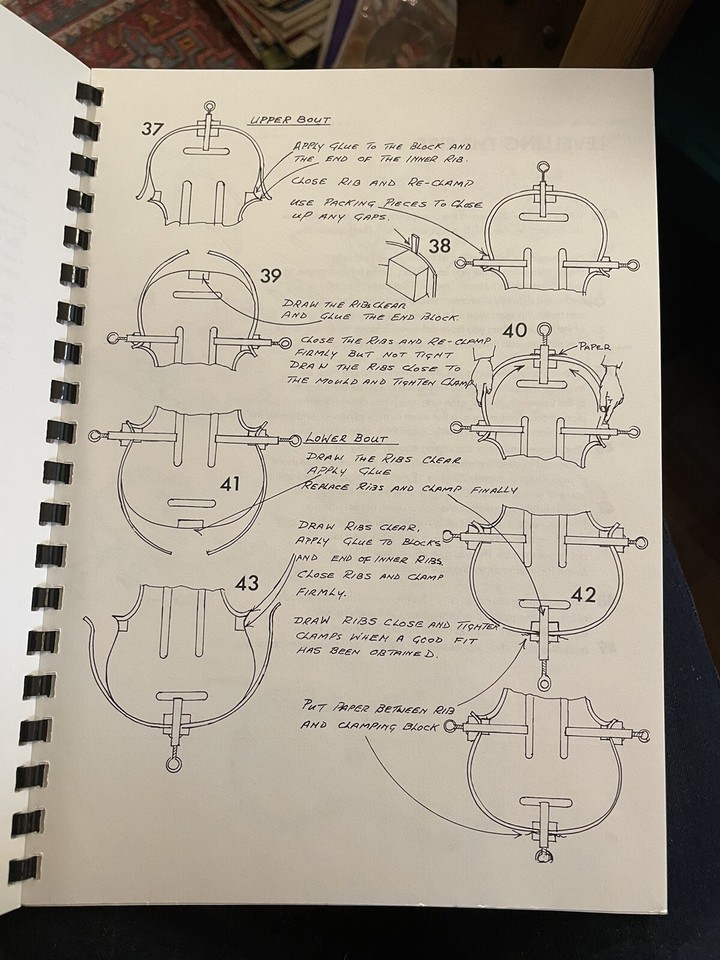 37
UPPER BOUT
APPLY GLUE TO THE BLOCK AND
THE END OF THE INNER RIB.
CLOSE RIB AND RE-CLAMP
USE PACKING PIECES TO CLOSE
UP ANY GAPS.
38
39
DRAW THE RIBS CLEAR
AND GLUE THE END BLOCK.
40
PAPER
CLOSE THE RIBS AND RE-CLAMP
FIRMLY BUT NOT TIGHT
DRAW THE RIBS CLOSE TO
THE MOULD AND TIGHTEN CLAMP
LOWER BOUT
41
DRAW THE RIBS CLEAR
APPLY GLUE
REPLACE RIBS AND CLAMP FINALLY
DRAW RIBS CLEAR,
APPLY GLUE TO BLOCKS
AND END OF INNER RIBS.
CLOSE RIBS AND CLAMP
FIRMLY.
42
43
DRAW RIBS CLOSE AND TIGHTEN
CLAMPS WHEN A GOOD FIT
HAS BEEN OBTAINED.
PUT PAPER BETWEEN RIB
AND CLAMPING BLOCK